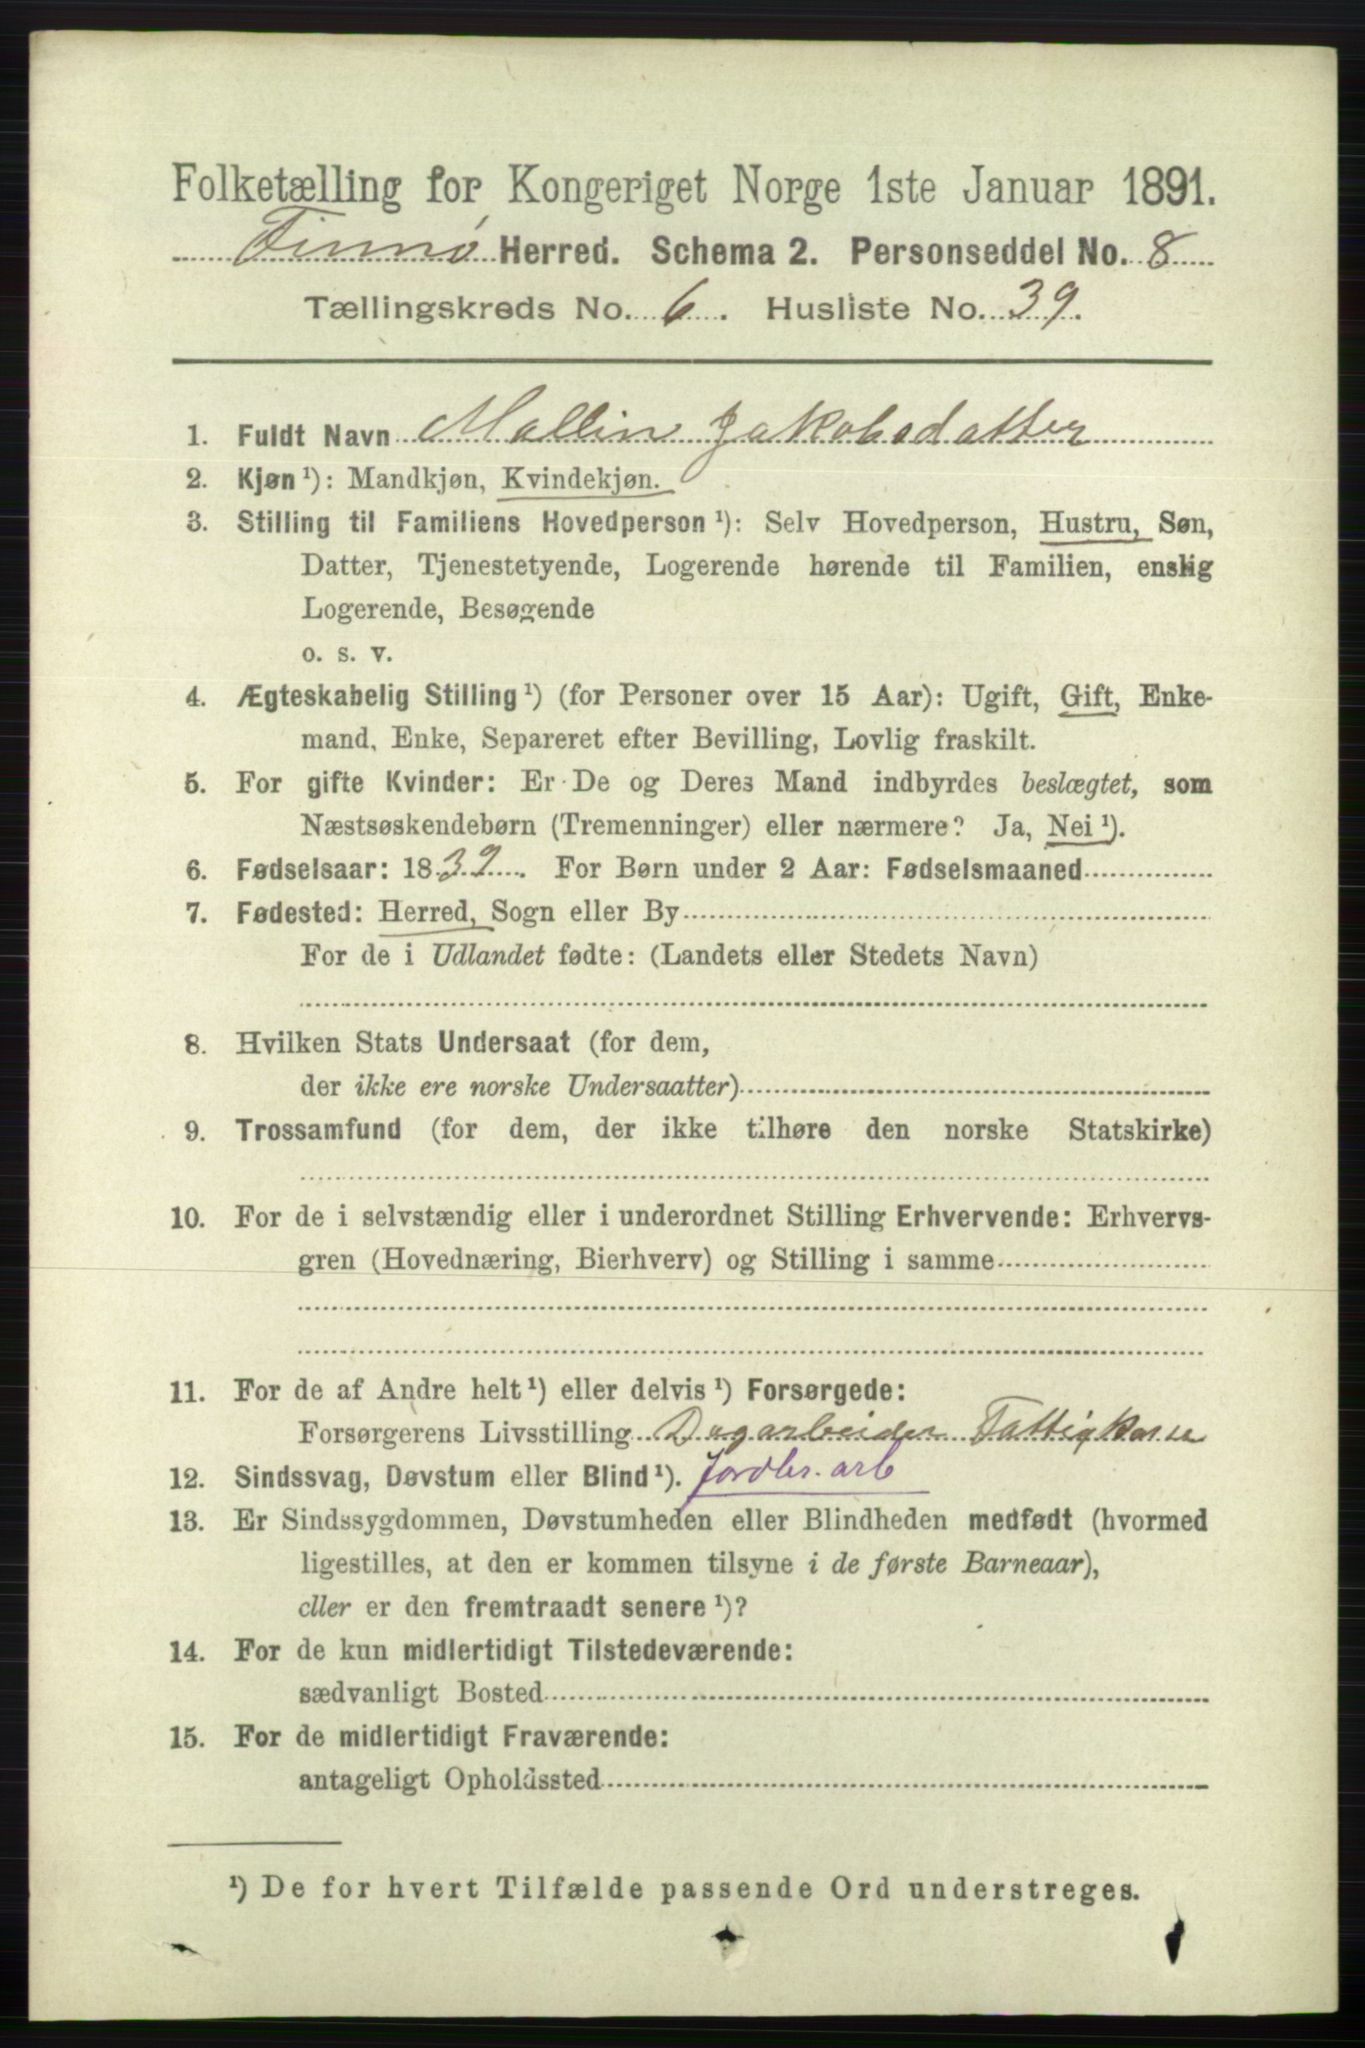 Folketælling for Kongeriget Norge 1ste Januar 1891.
Finnø Herred. Schema 2. Personseddel No. 8
Tællingskreds No. 6. Husliste No. 39.
1. Fuldt Navn Mallin Jakobsdatter
2. Kjøn ¹): Mandkjøn, Kvindekjøn.
3. Stilling til Familiens Hovedperson ¹): Selv Hovedperson, Hustru, Søn,
Datter, Tjenestetyende, Logerende hørende til Familien, enslig
Logerende, Besøgende
o. s. v.
4. Ægteskabelig Stilling ¹) (for Personer over 15 Aar): Ugift, Gift, Enke-
mand, Enke, Separeret efter Bevilling, Lovlig fraskilt.
5. For gifte Kvinder: Er De og Deres Mand indbyrdes beslægtet, som
Næstsøskendebørn (Tremenninger) eller nærmere? Ja, Nei ¹).
6. Fødselsaar: 1839. For Børn under 2 Aar: Fødselsmaaned
7. Fødested: Herred, Sogn eller By
For de i Udlandet fødte: (Landets eller Stedets Navn)
8. Hvilken Stats Undersaat (for dem,
der ikke ere norske Undersaatter)
9. Trossamfund (for dem, der ikke tilhøre den norske Statskirke)
10. For de i selvstændig eller i underordnet Stilling Erhvervende: Erhvervs-
gren (Hovednæring, Bierhverv) og Stilling i samme
11. For de af Andre helt ¹) eller delvis ¹) Forsørgede:
Forsørgerens Livsstilling Dagarbeider Fattigkasse
12. Sindssvag, Døvstum eller Blind ¹). Jordbr. arb
13. Er Sindssygdommen, Døvstumheden eller Blindheden medfødt (hvormed
ligestilles, at den er kommen tilsyne i de første Barneaar),
eller er den fremtraadt senere ¹)?
14. For de kun midlertidigt Tilstedeværende:
sædvanligt Bosted
15. For de midlertidigt Fraværende:
antageligt Opholdssted
¹) De for hvert Tilfælde passende Ord understreges.